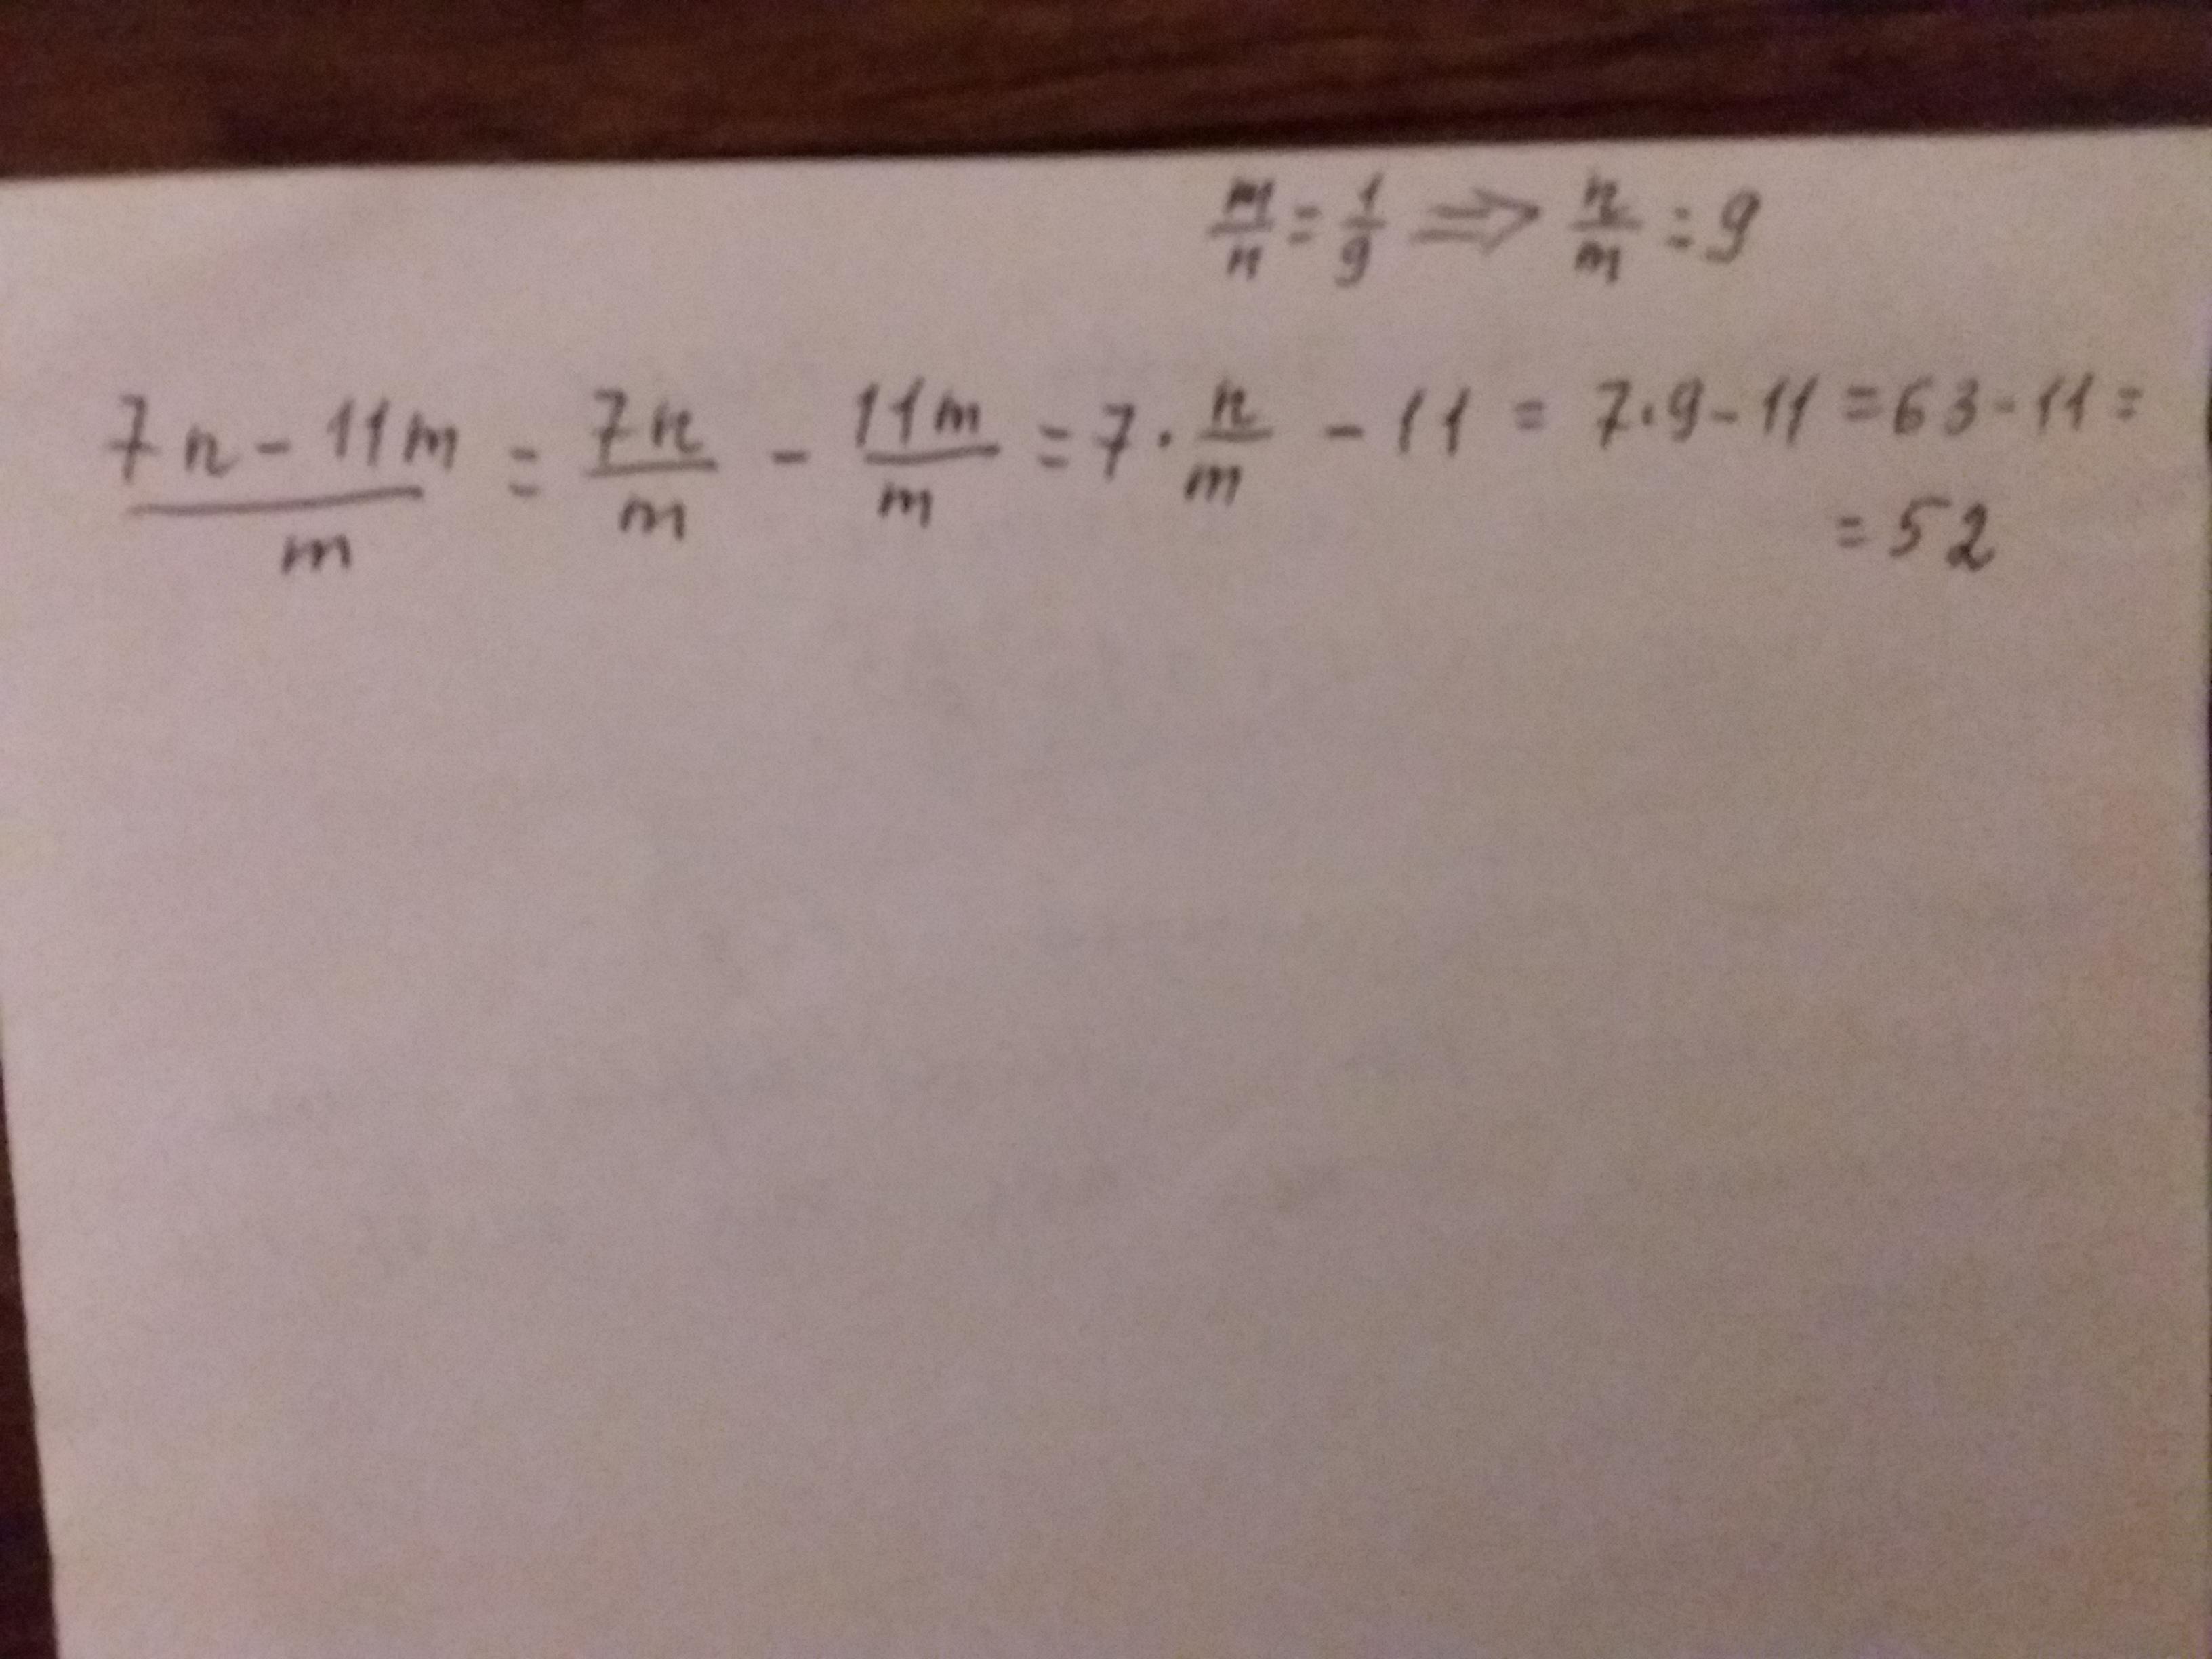 m/n = 1/9 ⇒ n/m = 9
(7n - 11m)/m = 7n/m - 11m/m = 7 · n/m - 11 = 7·9 - 11 = 63 - 11 =
= 52